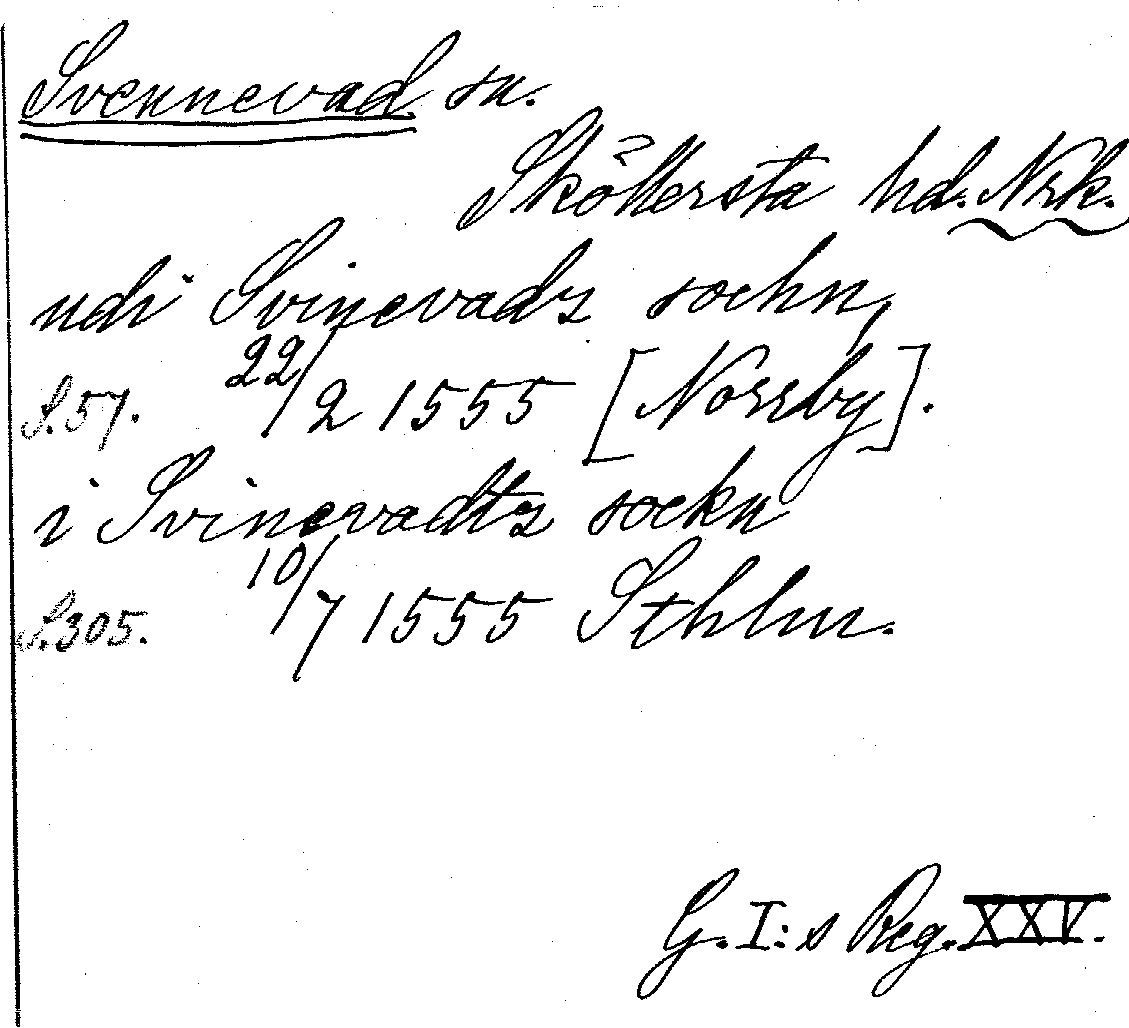 Svennevad sn.
Sköllersta hd. Nrk.
udi Svinevadz sochn,
S. 57. 22/2 1555 [Norrby].
i Svinevadtz sockn
S. 305. 10/7 1555 Sthlm.
G. I:s Reg. XXV.